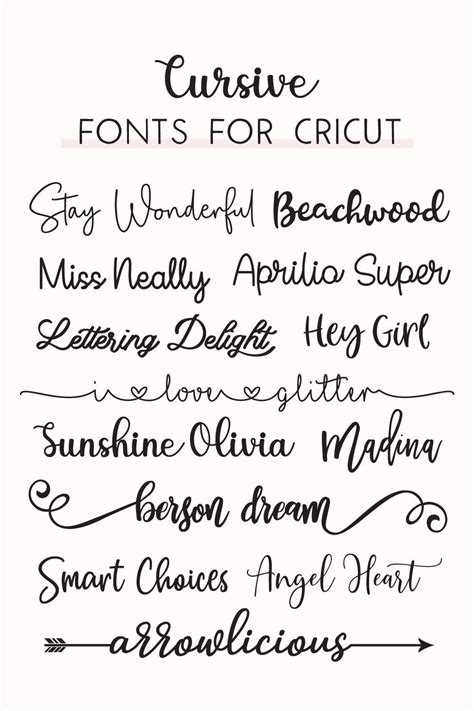 Cursive
FONTS FOR CRICUT
Stay Wonderful Beachwood
Miss Neally Aprilia Super
Lettering Delight Hey Girl
i love glitter
Sunshine Olivia Madina
berson dream
Smart Choices Angel Heart
arrowlicious